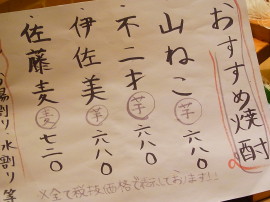 おすすめ焼酎
・山ねこ 芋 六八〇
・不二才 芋 六八〇
・伊佐美 芋 六八〇
・佐藤麦 麦 七二〇
お湯割り・水割り等
※全て税抜価格で表示しております!!